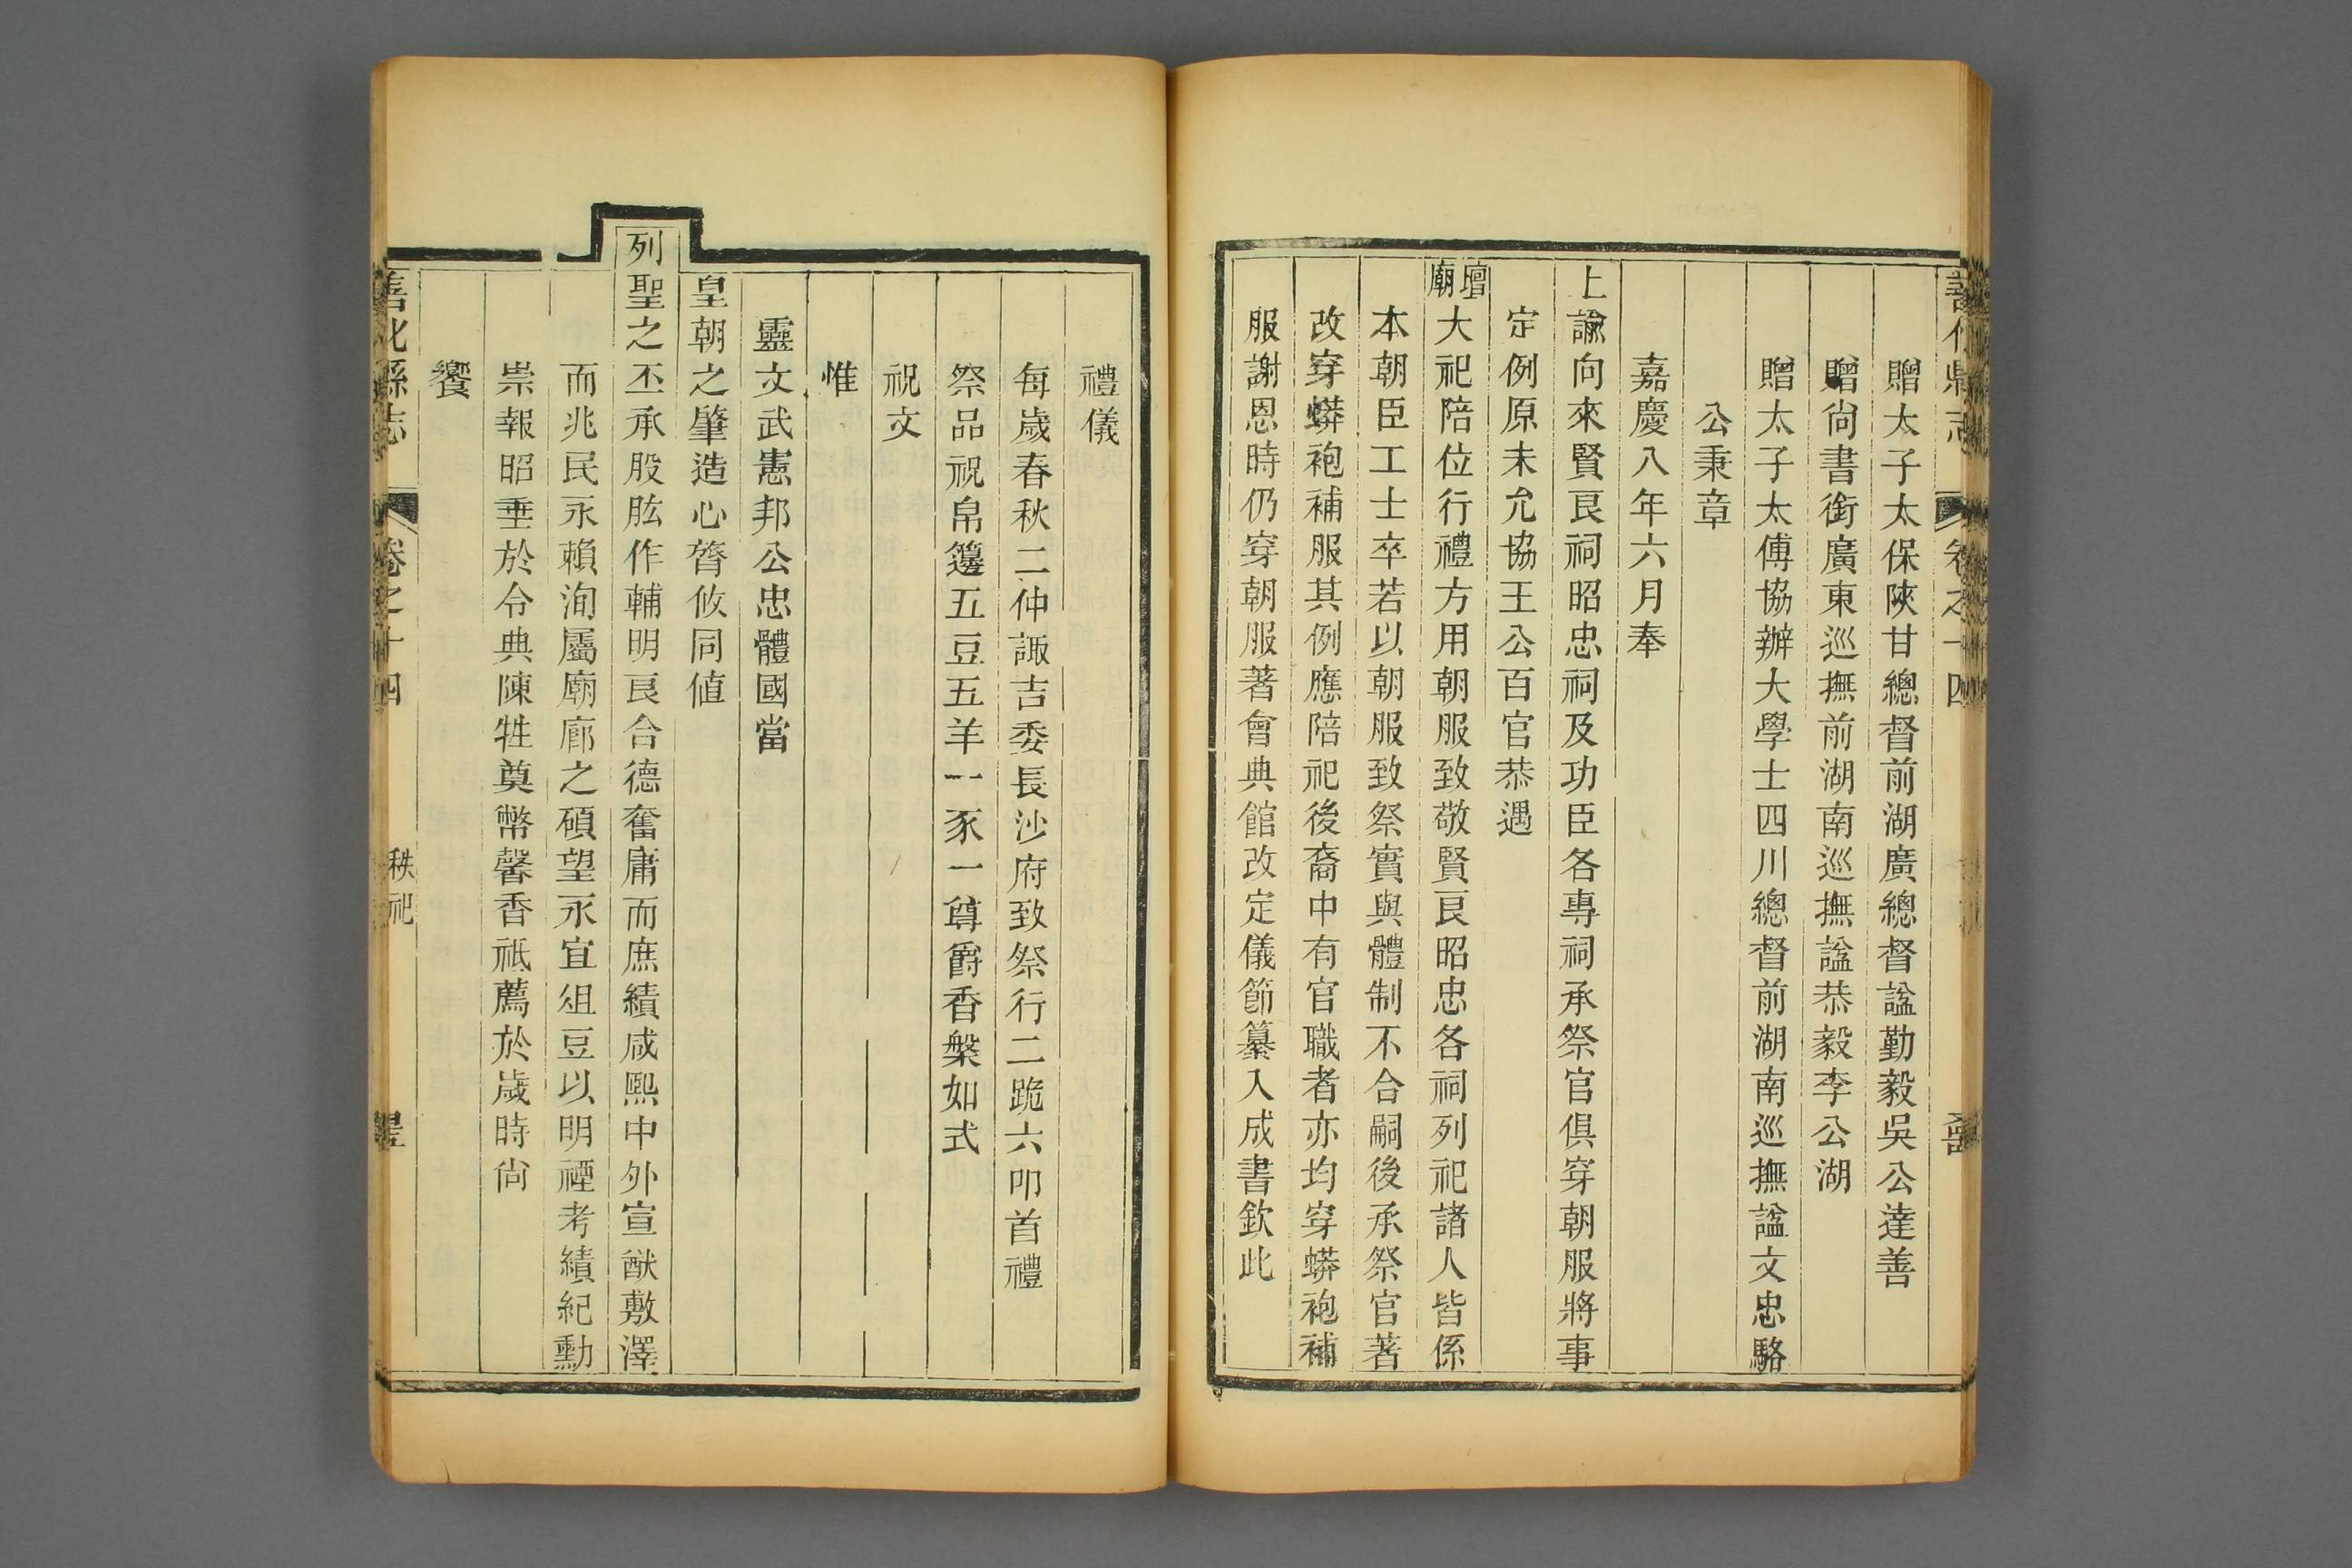 善化縣志 卷之十四
贈太子太保陝甘總督前湖廣總督諡勤毅吳公達善
贈尙書銜廣東巡撫前湖南巡撫諡恭毅李公湖
贈太子太傅協辦大學士四川總督前湖南巡撫諡文忠駱
公秉章
嘉慶八年六月奉
上諭向來賢良祠昭忠祠及功臣各專祠承祭官俱穿朝服將事
定例原未允協王公百官恭遇
壇廟大祀陪位行禮方用朝服致敬賢良昭忠各祠列祀諸人皆係
本朝臣工士卒若以朝服致祭實與體制不合嗣後承祭官著
改穿蟒袍補服其例應陪祀後裔中有官職者亦均穿蟒袍補
服謝恩時仍穿朝服著會典館改定儀節纂入成書欽此
禮儀
每歲春秋二仲諏吉委長沙府致祭行二跪六叩首禮
祭品祝帛籩五豆五羊一豕一尊爵香槃如式
祝文
惟
靈文武憲邦公忠體國當
皇朝之肇造心膂攸同値
列聖之丕承股肱作輔明良合德奮庸而庶績咸熙中外宣猷敷澤
而兆民永賴洵屬廟廊之碩望永宜俎豆以明禋考績紀勳
崇報昭垂於令典陳牲奠幣馨香祗薦於歲時尙
饗
善化縣志 卷之十四 秩祀